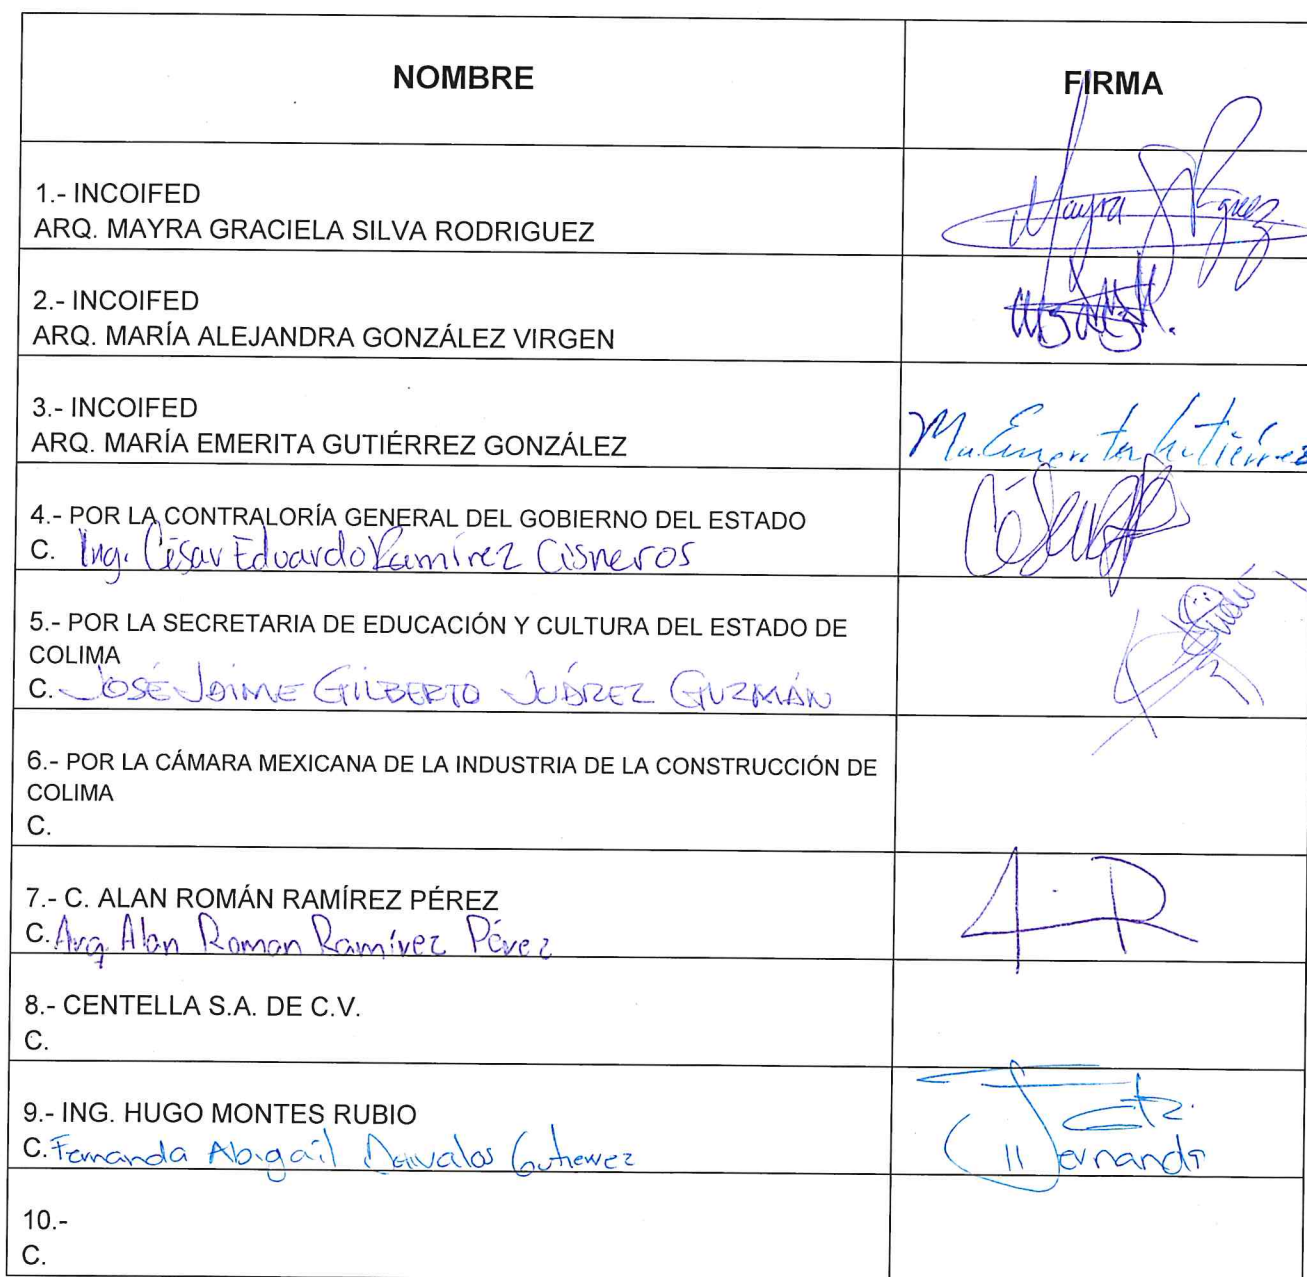 NOMBRE
FIRMA
1.- INCOIFED
ARQ. MAYRA GRACIELA SILVA RODRIGUEZ
Mayra
2.- INCOIFED
ARQ. MARÍA ALEJANDRA GONZÁLEZ VIRGEN
3.- INCOIFED
ARQ. MARÍA EMERITA GUTIÉRREZ GONZÁLEZ
Ma. Emerita Gutiérrez
4.- POR LA CONTRALORÍA GENERAL DEL GOBIERNO DEL ESTADO
C. Ing. César Eduardo Ramírez Cisneros
5.- POR LA SECRETARIA DE EDUCACIÓN Y CULTURA DEL ESTADO DE
COLIMA
C. JOSÉ JAIME GILBERTO JUÁREZ GUZMÁN
6.- POR LA CÁMARA MEXICANA DE LA INDUSTRIA DE LA CONSTRUCCIÓN DE
COLIMA
C.
7.- C. ALAN ROMÁN RAMÍREZ PÉREZ
C. Arq. Alan Roman Ramírez Pérez
8.- CENTELLA S.A. DE C.V.
C.
9.- ING. HUGO MONTES RUBIO
C. Fernanda Abigail Davalos Gutierrez
Fernanda
10.-
C.